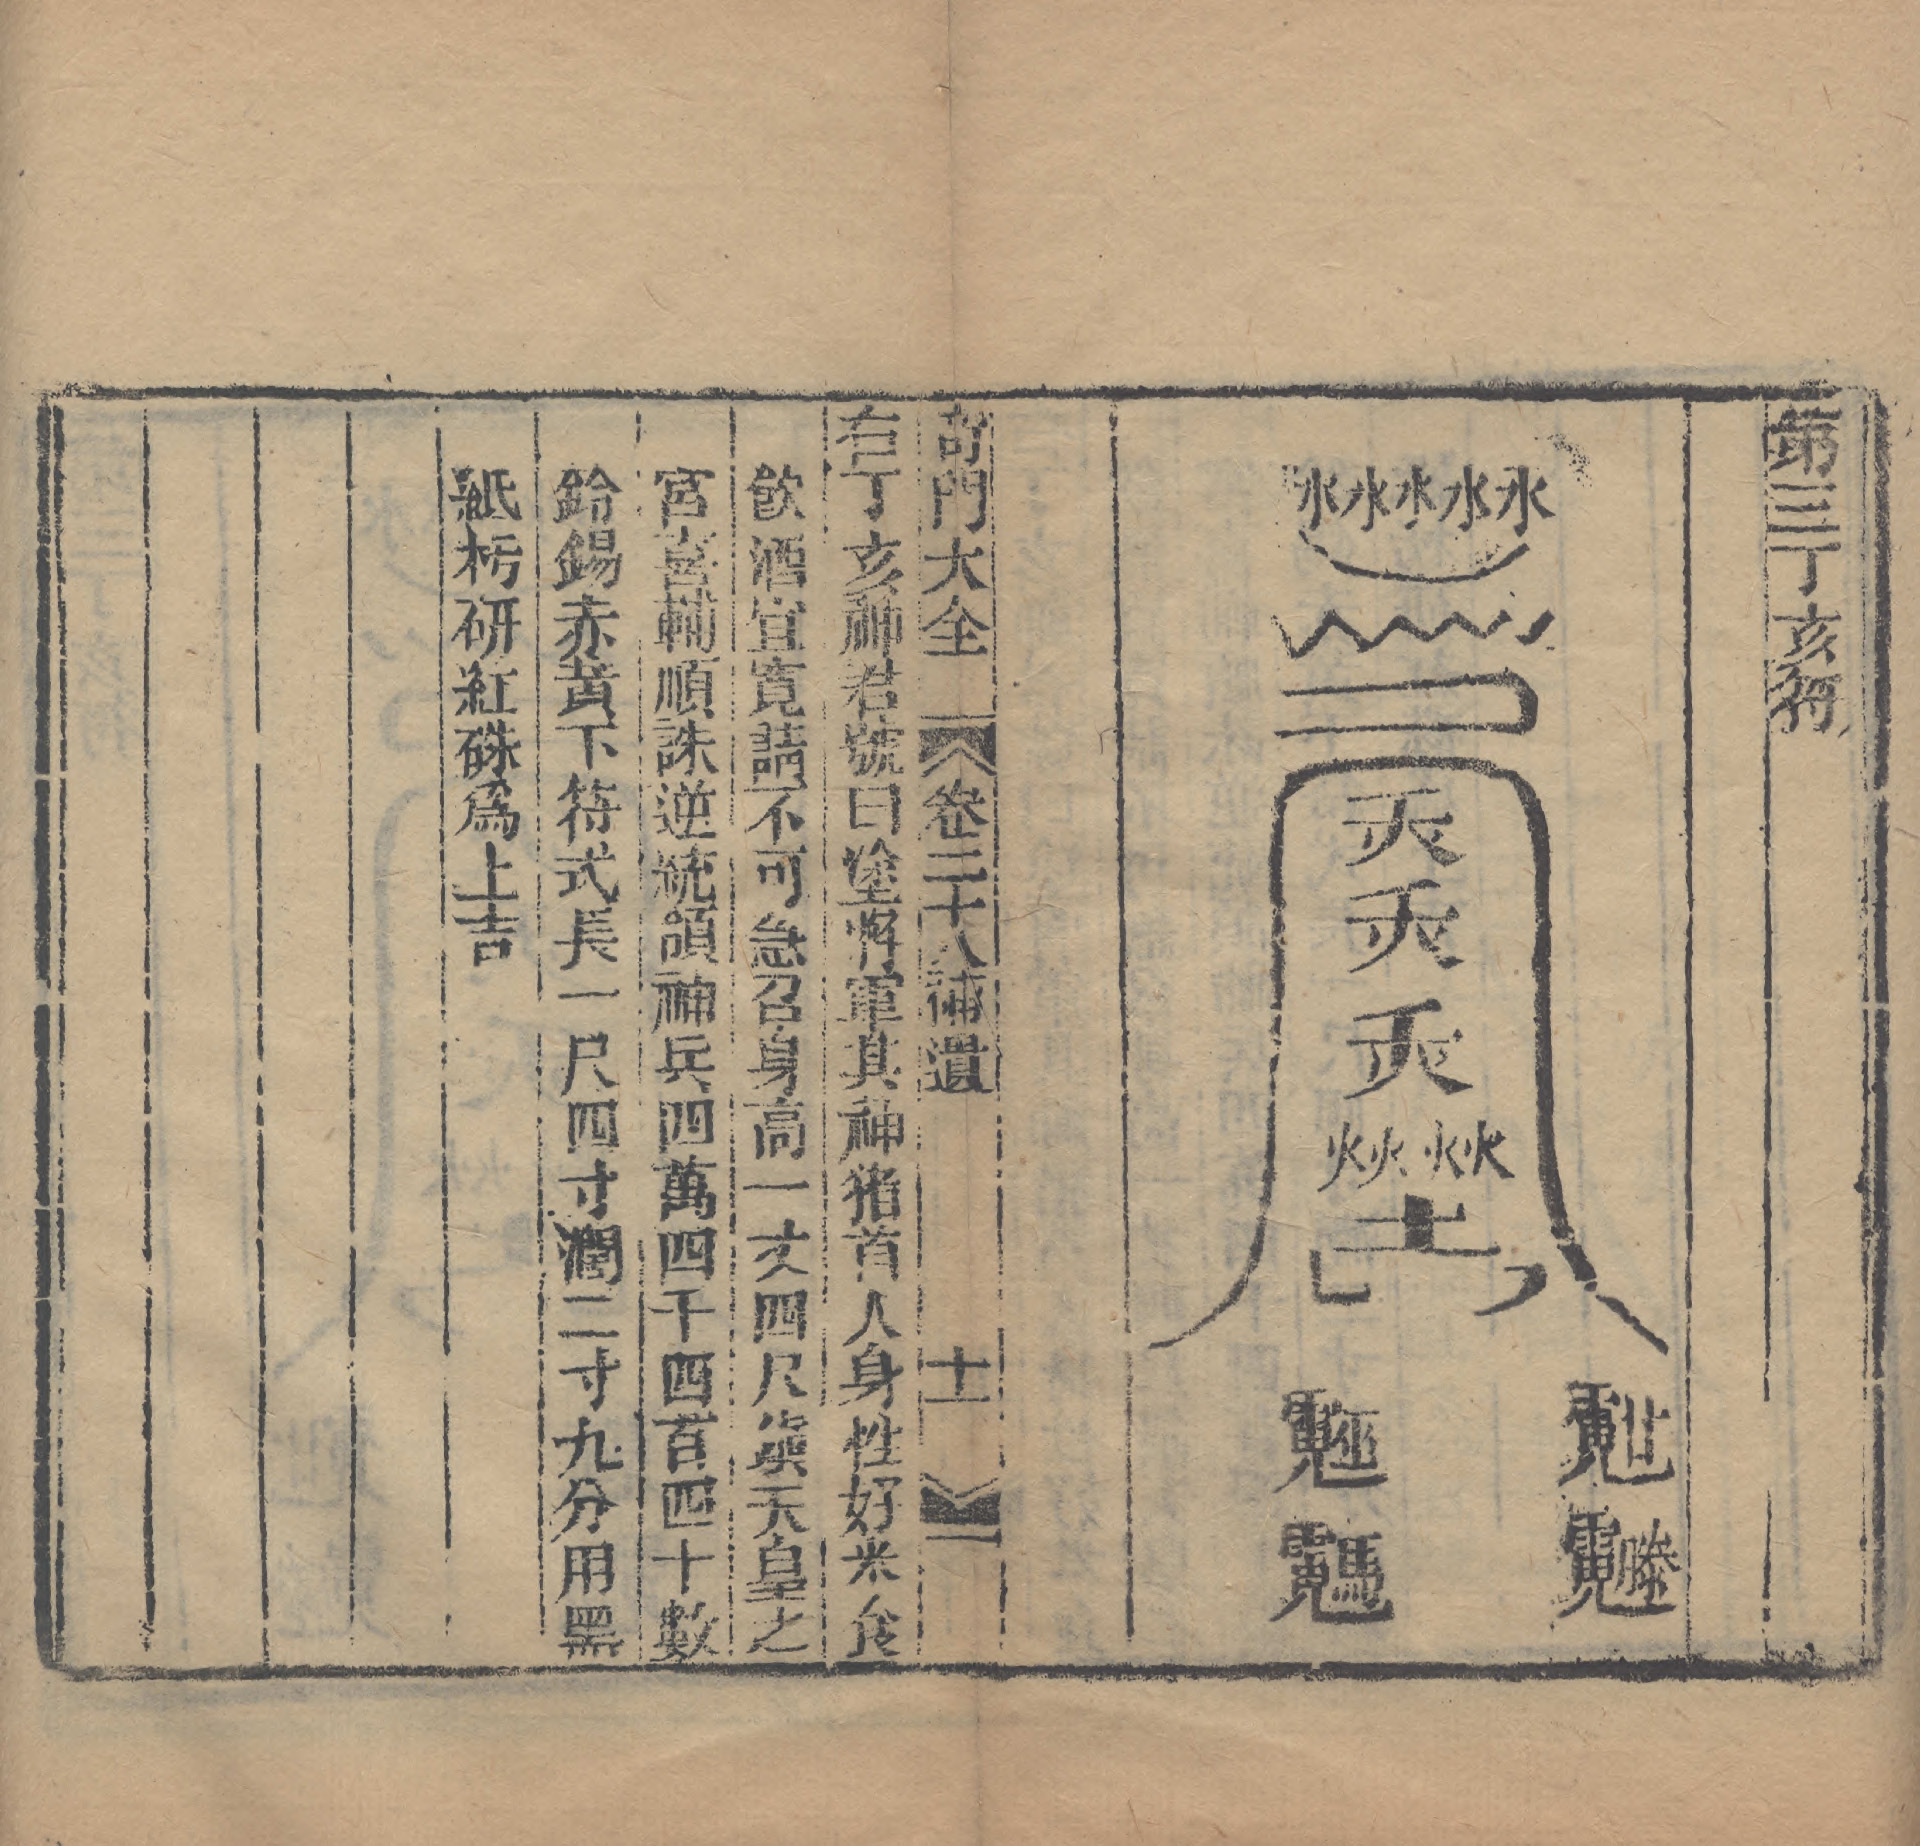 第三丁亥符
水水水水水
火火火火
土
奇門大全 卷二十八補遺 十一
右丁亥神君號曰塗將軍其神猪首人身性好米食
飲酒宜寬請不可急召身高一丈四尺眞天皇之
宮喜輔順誅逆統領神兵四萬四千四百四十數
鈴錫赤黃下符式長一尺四寸濶二寸九分用黑
紙杇研紅硃為上吉